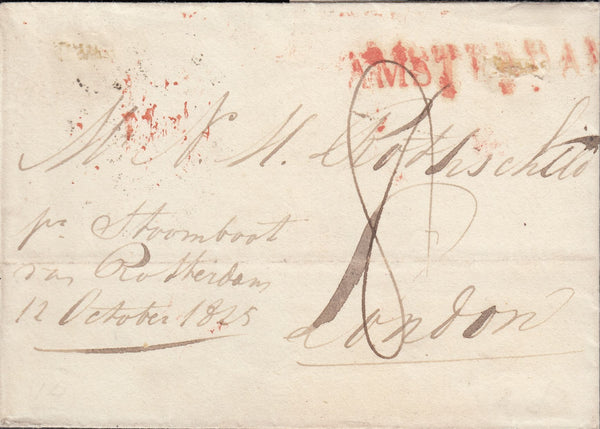 AMSTERDAM
Mr N. M. Rothschild
8
pr Stoomboot
van Rotterdam
12 October 1825
London